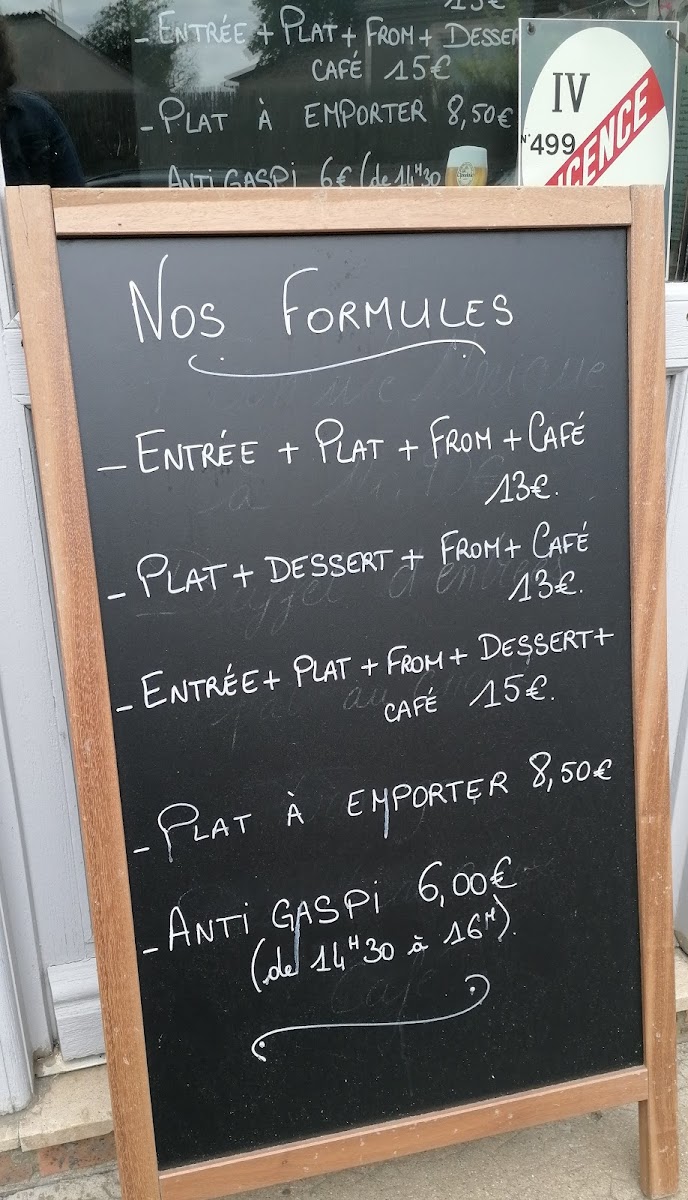 15€
- ENTRÉE + PLAT + FROM + DESSER
CAFÉ 15€
- PLAT À EMPORTER 8,50€
ANTI GASPI 6€ (de 14H30
IV
N° 499
ICENCE
NOS FORMULES
- ENTRÉE + PLAT + FROM + CAFÉ
13€.
- PLAT + DESSERT + FROM + CAFÉ
13€.
- ENTRÉE + PLAT + FROM + DESSERT +
CAFÉ 15€.
- PLAT À EMPORTER 8,50€
- ANTI GASPI 6,00€
(de 14H30 à 16H).